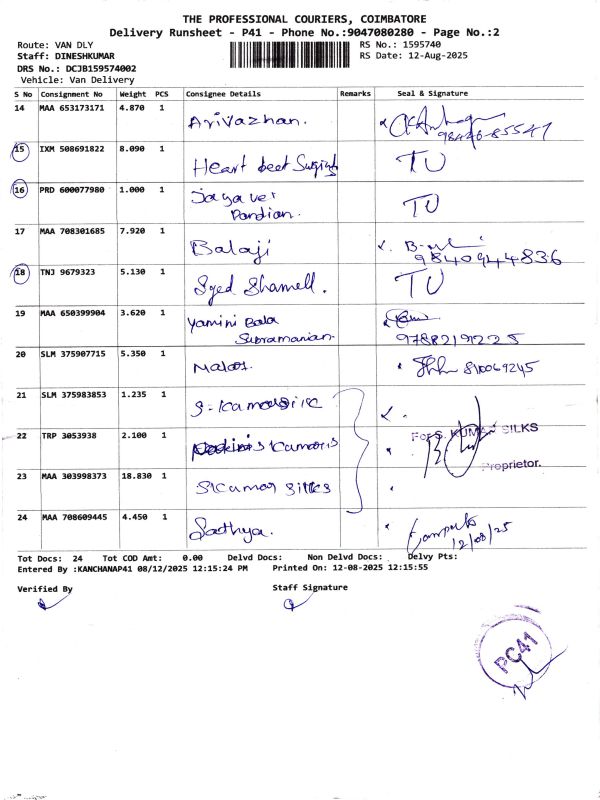 THE PROFESSIONAL COURIERS, COIMBATORE
Delivery Runsheet - P41 - Phone No.:9047080280 - Page No.:2
Route: VAN DLY
RS No.: 1595740
Staff: DINESHKUMAR
RS Date: 12-Aug-2025
DRS No.: DCJB159574002
Vehicle: Van Delivery
S No Consignment No Weight PCS Consignee Details Remarks Seal & Signature
14 MAA 653173171 4.870 1 Arivazhan.
15 IXM 508691822 8.090 1 Heart beet TU
16 PRD 600077980 1.000 1 Jayavel TU
Pandian.
17 MAA 708301685 7.920 1 Balaji
9840944836
18 TNJ 9679323 5.130 1 Syed Shamell. TU
19 MAA 650399904 3.620 1 Yamini Bala
Supramanian.
20 SLM 375907715 5.350 1
21 SLM 375983853 1.235 1
For S. KUMAR SILKS
22 TRP 3053938 2.100 1
Proprietor.
23 MAA 303998373 18.830 1 S Kumar Silks
24 MAA 708609445 4.450 1 Sadhya.
12/08/25
Tot Docs: 24 Tot COD Amt: 0.00 Delvd Docs: Non Delvd Docs: Delvy Pts:
Entered By :KANCHANAP41 08/12/2025 12:15:24 PM Printed On: 12-08-2025 12:15:55
Verified By Staff Signature
PC41